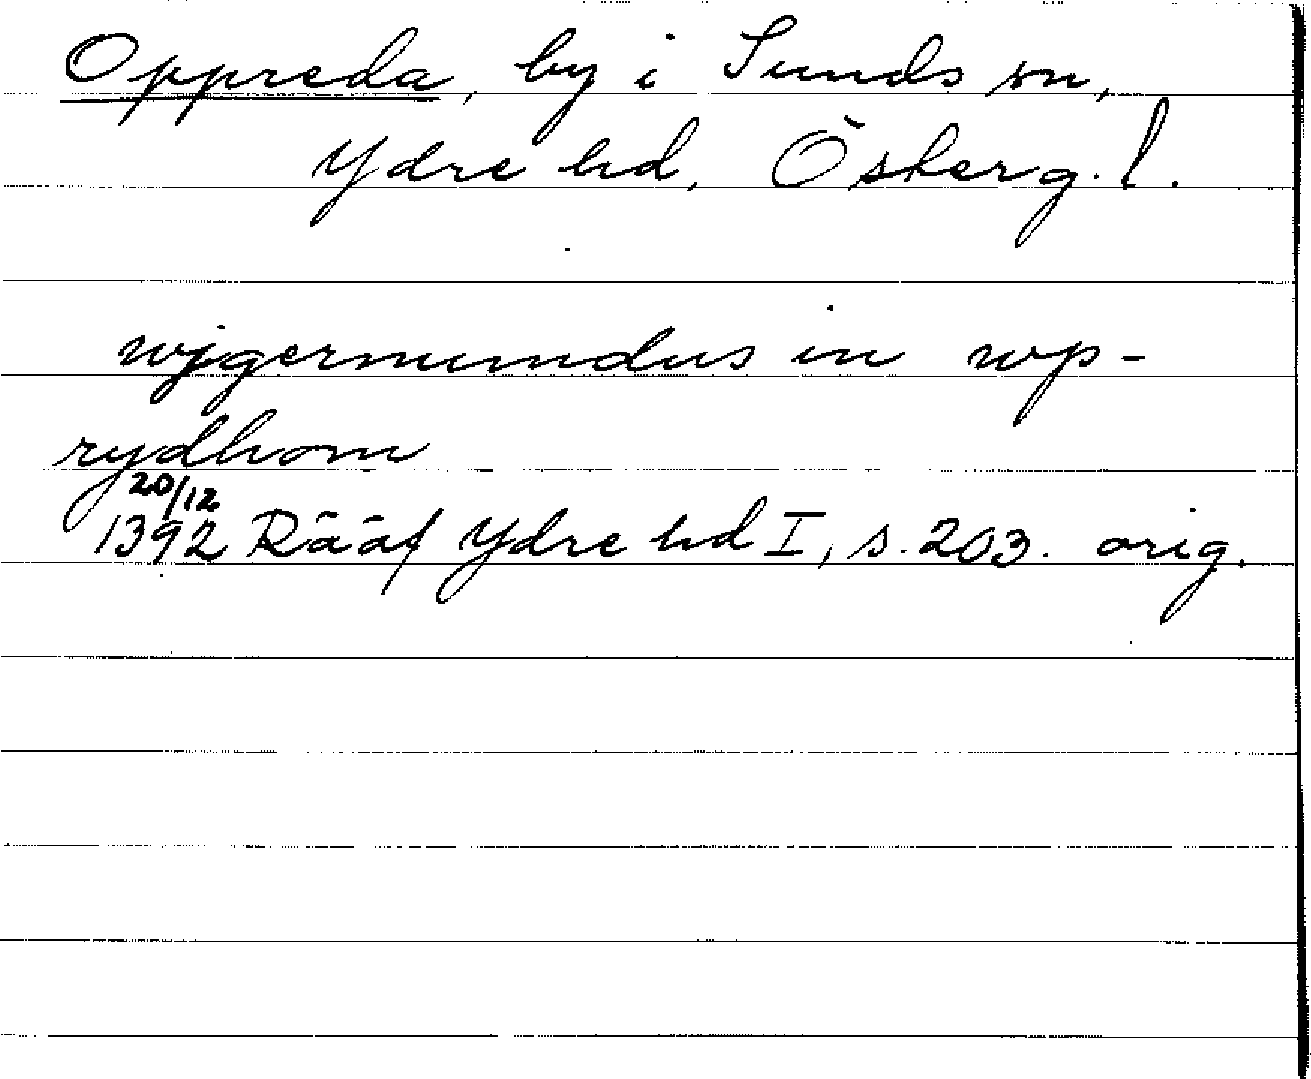 Oppreda, by i Sunds sn,
Ydre hd, Österg. l.
wjgermundus in wp-
rydhom
20/12
1392 Rääf Ydre hd I, s. 203. orig.